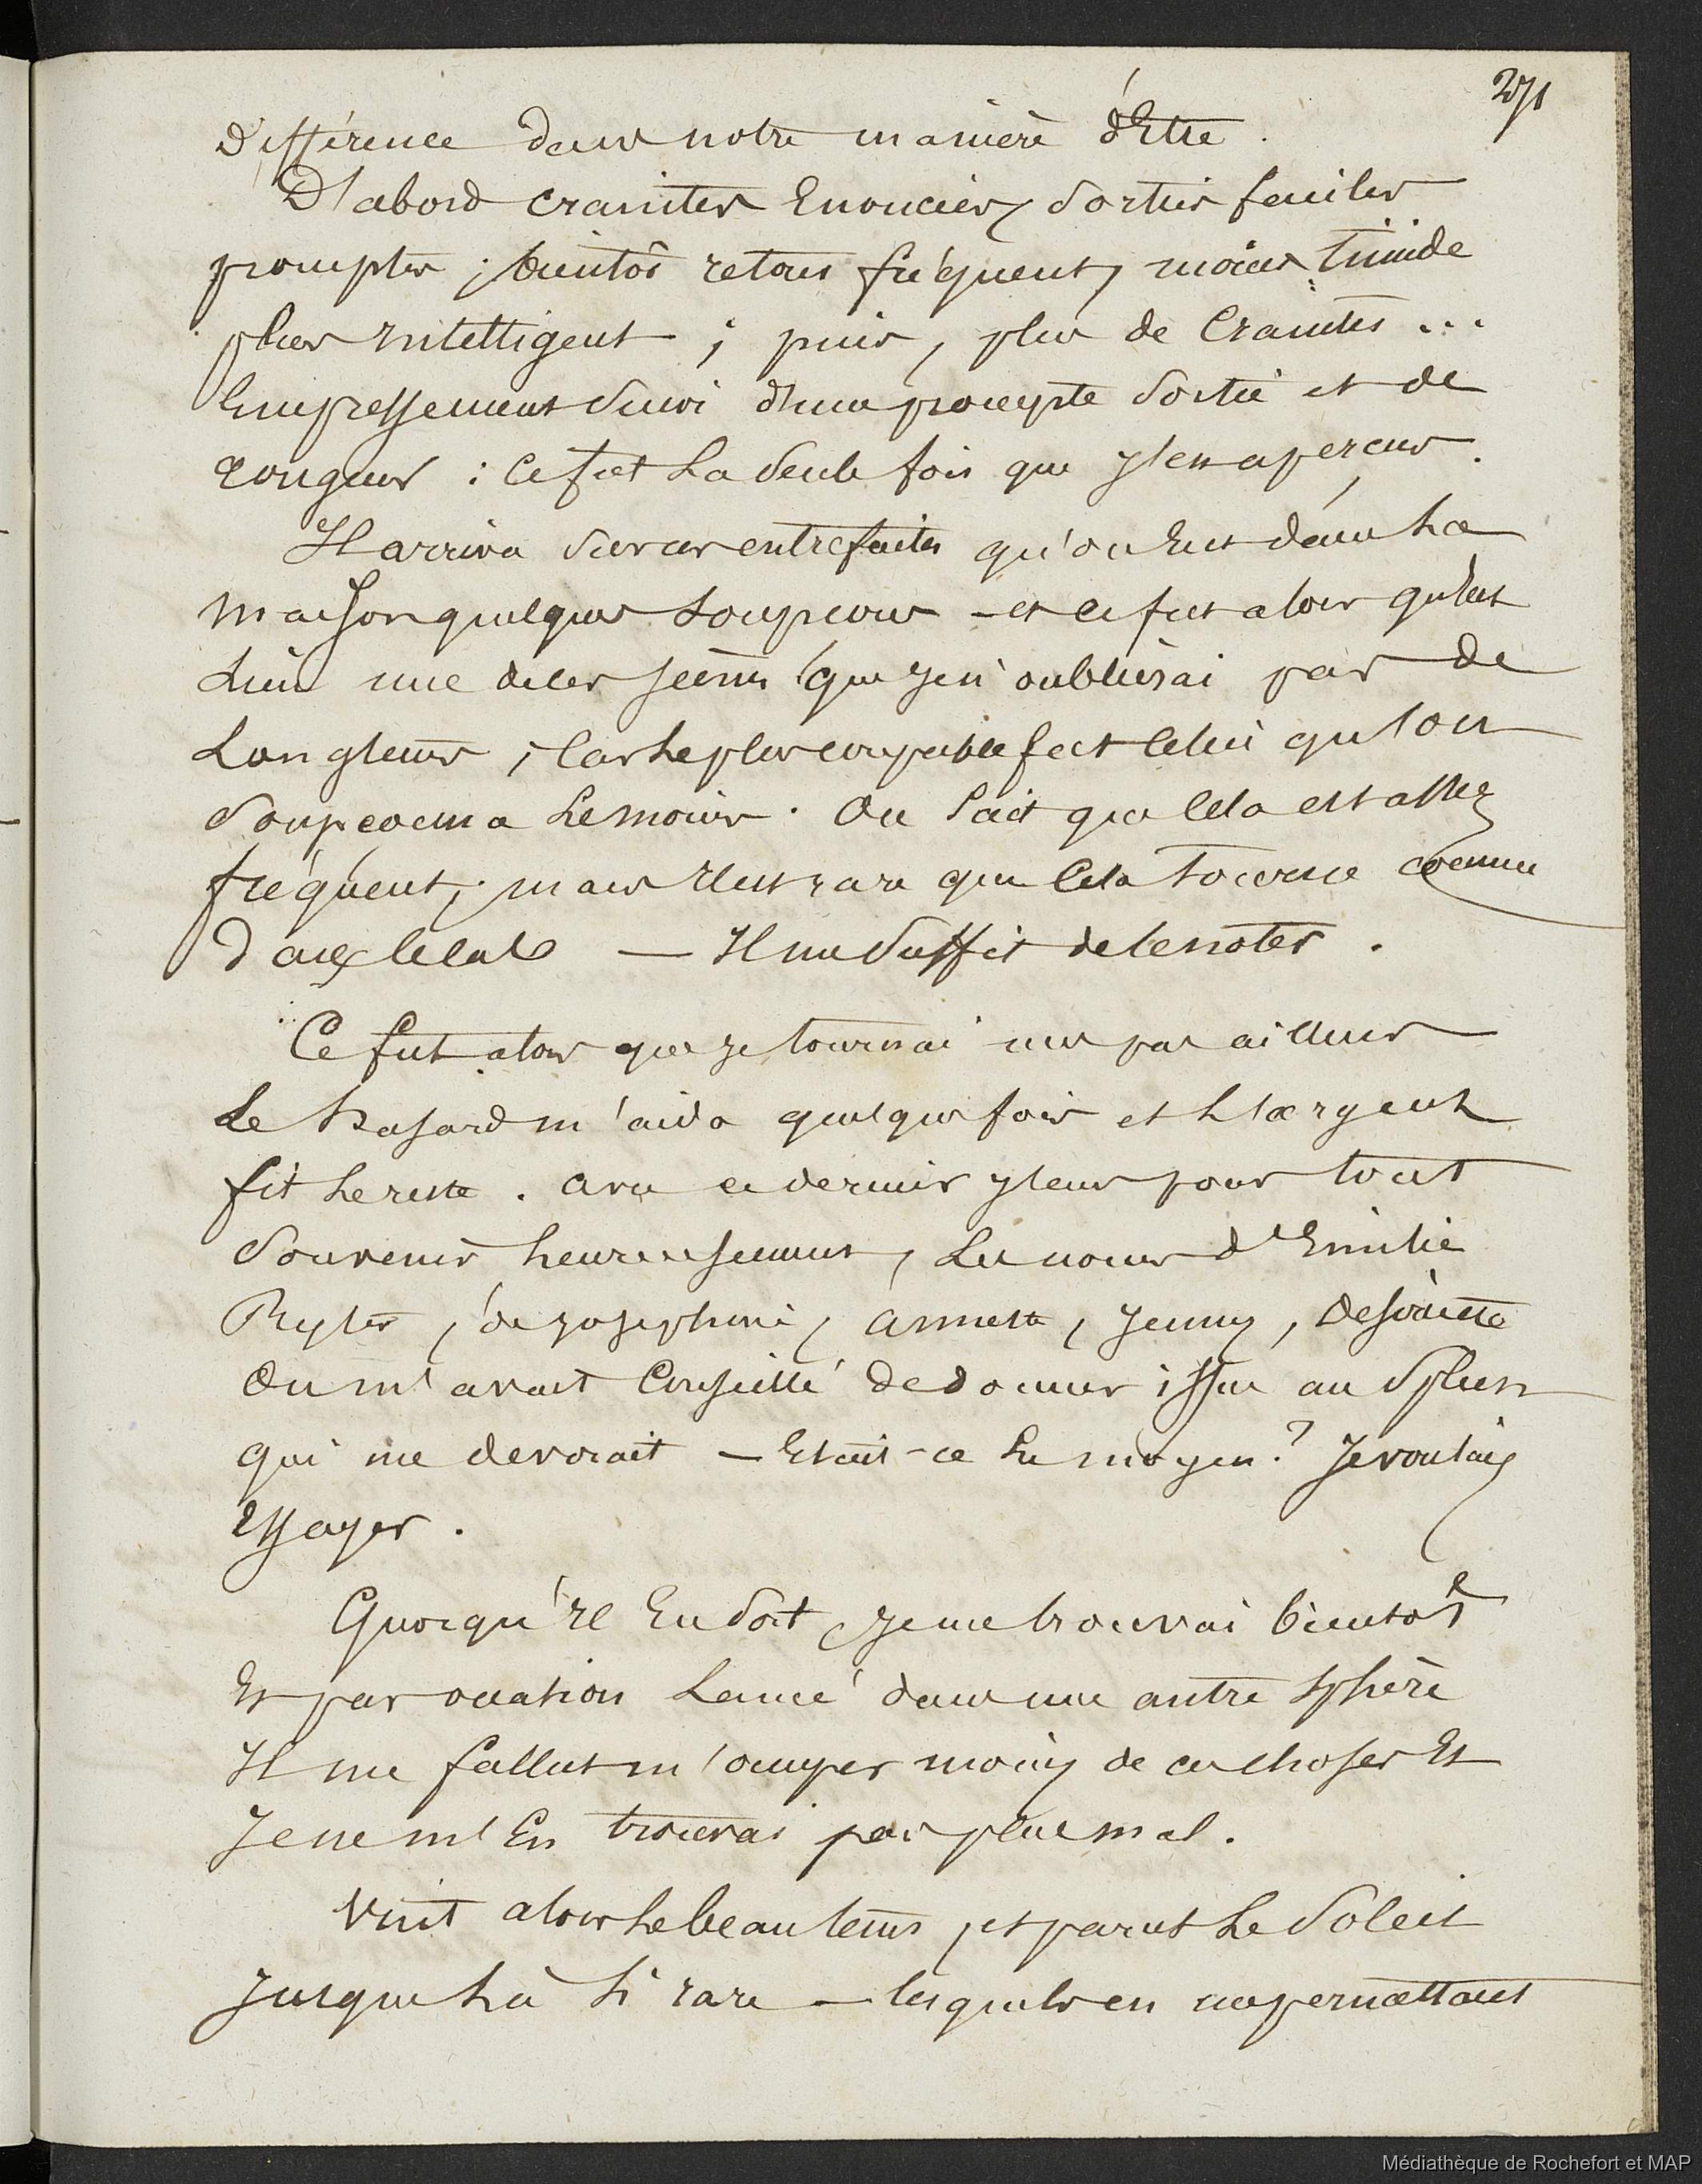 271
différence dans notre manière d'Etre.
D'abord craintes Enoncées, sorties faciles
promptes ; bientôt retour fréquent, moins timide
plus intelligent ; puis, plus de Craintes ...
Empressement suivi d'une prompte sortie et de
rougeur : Ce fut La seule fois que j'en aperçus.
Il arriva sur ces entrefaites qu'on Eut dans La
maison quelques soupçons - et ce fut alors qu'eut
Lieu une de ces scènes que je n'oublierai pas de
Longtems ; Car Le plus coupable fut Celui qu'on
soupçonna Le moins. On sait que Cela est assez
fréquent ; mais Il est rare que Cela tourne comme
dans Cela — Il me suffit de le noter.
Ce fut alors que je tournai mes pas ailleurs
Le hasard m'aida quelque fois et L'argent
fit Le reste. Avec ce dernier j'eus pour tout
souvenir heureusement, Les noms d'Emilie
de Josephine, Annette, Jenny,
On m'avait Conseillé de donner issue au spleen
qui me devorait — Etait-ce Le moyen ? Je voulais
Essayer.
Quoiqu'il En soit, je me trouvai bientôt
Et par occasion Lancé dans une autre sphère
Il me fallut m'occuper moins de ces choses Et
Je ne m'En trouvai pas plus mal.
Vint alors Le beau tems, et parut Le Soleil
Jusque Là si rare — lesquels en me permettant
Médiathèque de Rochefort et MAP